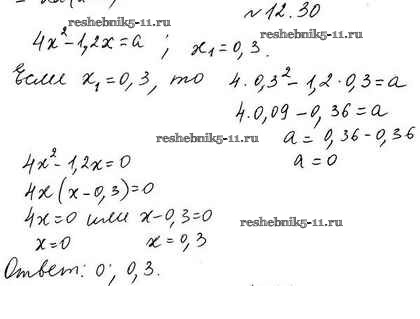 №12.30
reshebnik5-11.ru
4x²-1,2x=a; x₁=0,3.
Если x₁=0,3, то 4·0,3²-1,2·0,3=a
4·0,09-0,36=a
reshebnik5-11.ru
a=0,36-0,36
a=0
4x²-1,2x=0
4x(x-0,3)=0
4x=0 или x-0,3=0
reshebnik5-11.ru
x=0 x=0,3
Ответ: 0; 0,3.